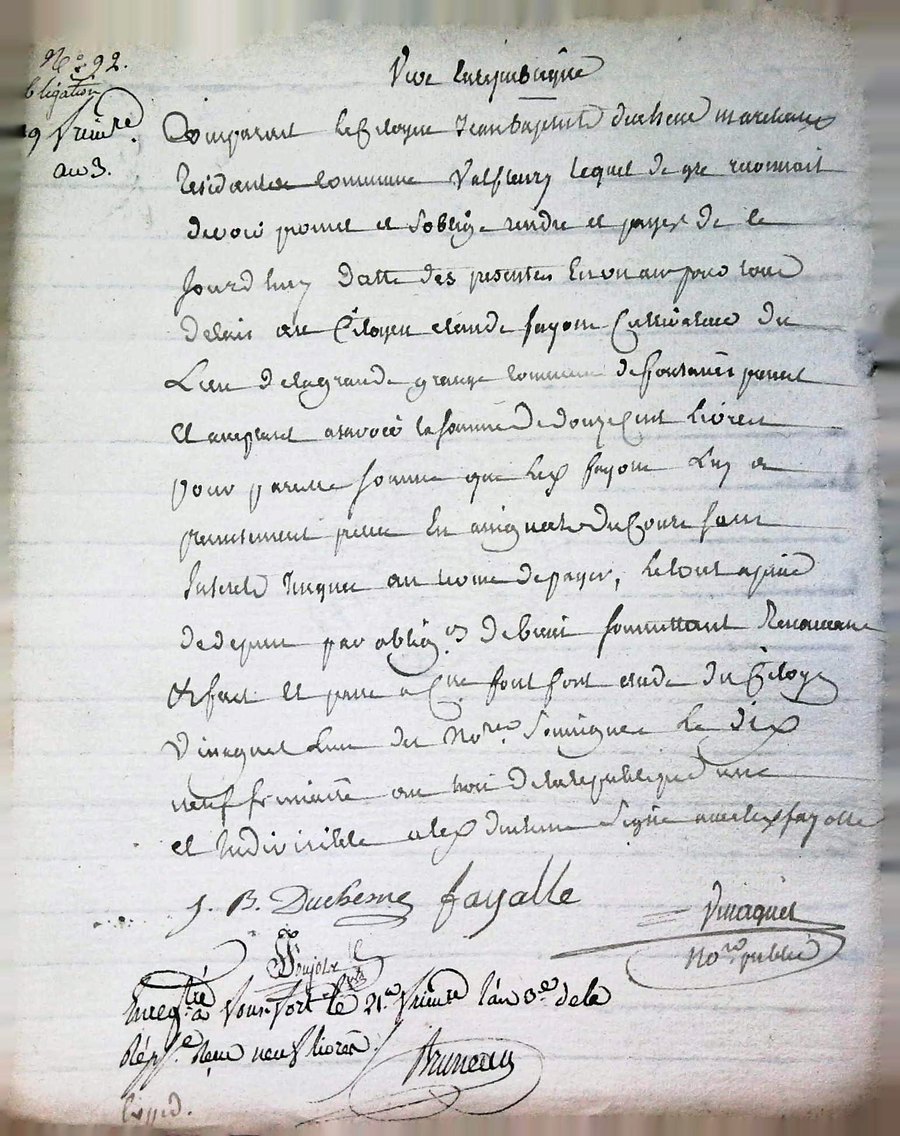 N.º 92.
obligation
19 frimre
an 3.
Vive la republique
Comparait le Citoyen Jean Baptiste duchene marchand
Residant en commune Valfleury lequel de gre reconnait
devoir promet et soblige rendre et payer de ce
jourd huy datte des presentes En un an pour tout
delais au Citoyen claude fayolle Cultivateur du
Lieu de la grande grange commune de fontanes present
et acceptant a savoir la somme de douze Cent livres
pour pareille somme que led fayolle Luy a
presentement prette En assignats du Cours sans
Interets Jusques au terme de payer, le tout a peine
de depens par oblig.on de biens soumettant Renonceant
&r fait et passe a fontfort etude du Citoyen
Vinaguet Lun des No.res Soussignes le dix
neuf frimaire an trois de la republique une
et Indivisible et led duchene Signe avec led fayolle
J. B. Duchesne fayolle
Vinaguet
No.re public
Enreg.tré à fort le 21.e frimre l'an 3.e de la
Rép.e Reçu neuf livres.
Bruneau